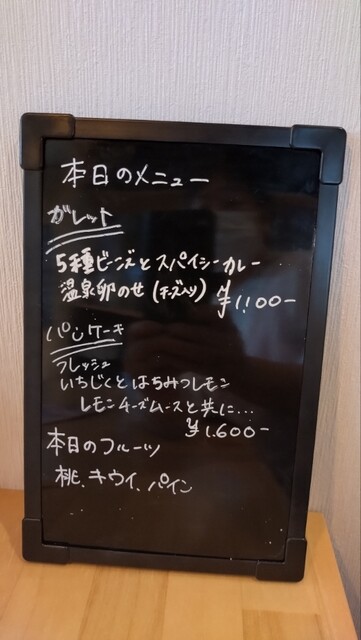 本日のメニュー
ガレット
5種ビーンズとスパイシーカレー
温泉卵のせ(チーズ入り) ¥1.100-
パンケーキ
フレッシュ
いちじくとはちみつレモン
レモンチーズムースと共に...
¥1.600-
本日のフルーツ
桃、キウイ、パイン